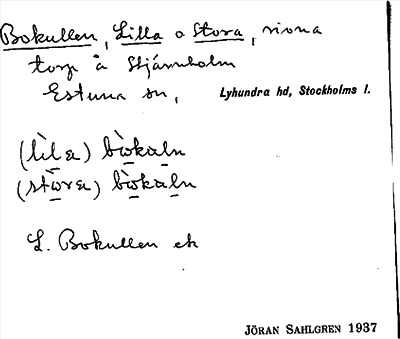 Bokullen, Lilla o Stora, rivna
torp å Stjärnholm
Estuna sn, Lyhundra hd, Stockholms l.
(lìla) bò̱kaln
(stò̱ra) bò̱kaln
L. Bokullen ek
JÖRAN SAHLGREN 1937